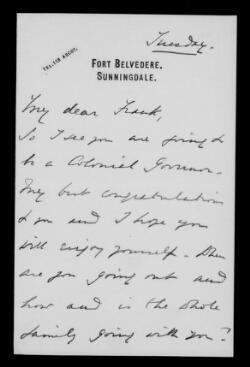 Tuesday.
TEL. 110 ASCOT.
FORT BELVEDERE,
SUNNINGDALE.
My dear Frank,
So I see you are going to
be a Colonial Governor.
My best congratulations
to you and I hope you
will enjoy yourself. When
are you going out and
how and is the whole
family going with you?